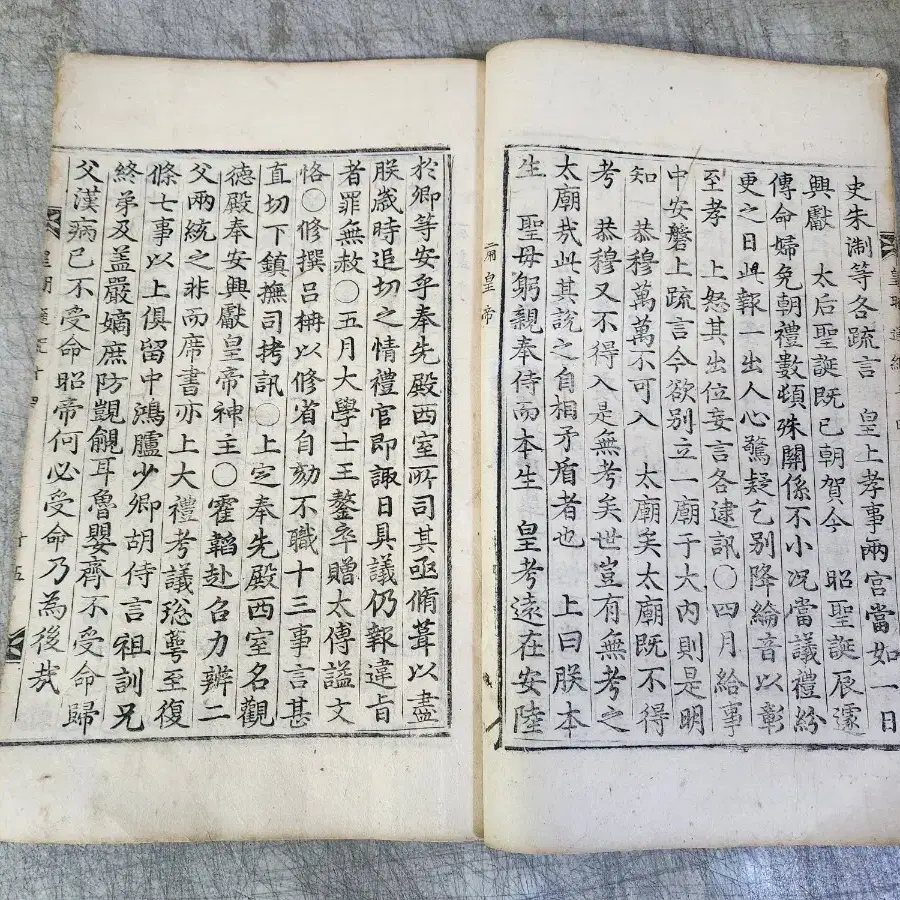 史朱淛等各疏言　皇上孝事兩宮當如一日
興獻　太后聖誕既已朝賀今　昭聖誕辰遽
傳命婦免朝禮數頓殊關係不小况當議禮紛
更之日此報一出人心驚疑乞別降綸音以彰
至孝　上怒其出位妄言各逮訊〇四月給事
中安磐上疏言今欲別立一廟于大内則是明
知　恭穆萬萬不可入　太廟矣太廟既不得
考　恭穆又不得入是無考矣世豈有無考之
太廟㢤此其說之自相矛盾者也　上曰朕本
生　聖母躬親奉侍而本生　皇考遠在安陸
肅皇帝
於卿等安乎奉先殿西室所司其亟脩葺以盡
朕歲時追切之情禮官即諏日具議仍報違旨
者罪無赦〇五月大學士王鏊卒贈太傅謚文
恪〇修撰呂柟以修省自劾不職十三事言甚
直切下鎮撫司拷訊〇上定奉先殿西室名觀
德殿奉安興獻皇帝神主〇霍韜赴召力辨二
父兩統之非而席書亦上大禮考議璁萼至復
條七事以上俱留中鴻臚少卿胡侍言祖訓兄
終弟及盖嚴嫡庶防覬覦耳魯嬰齊不受命歸
父漢病已不受命昭帝何必受命乃為後㢤
十五